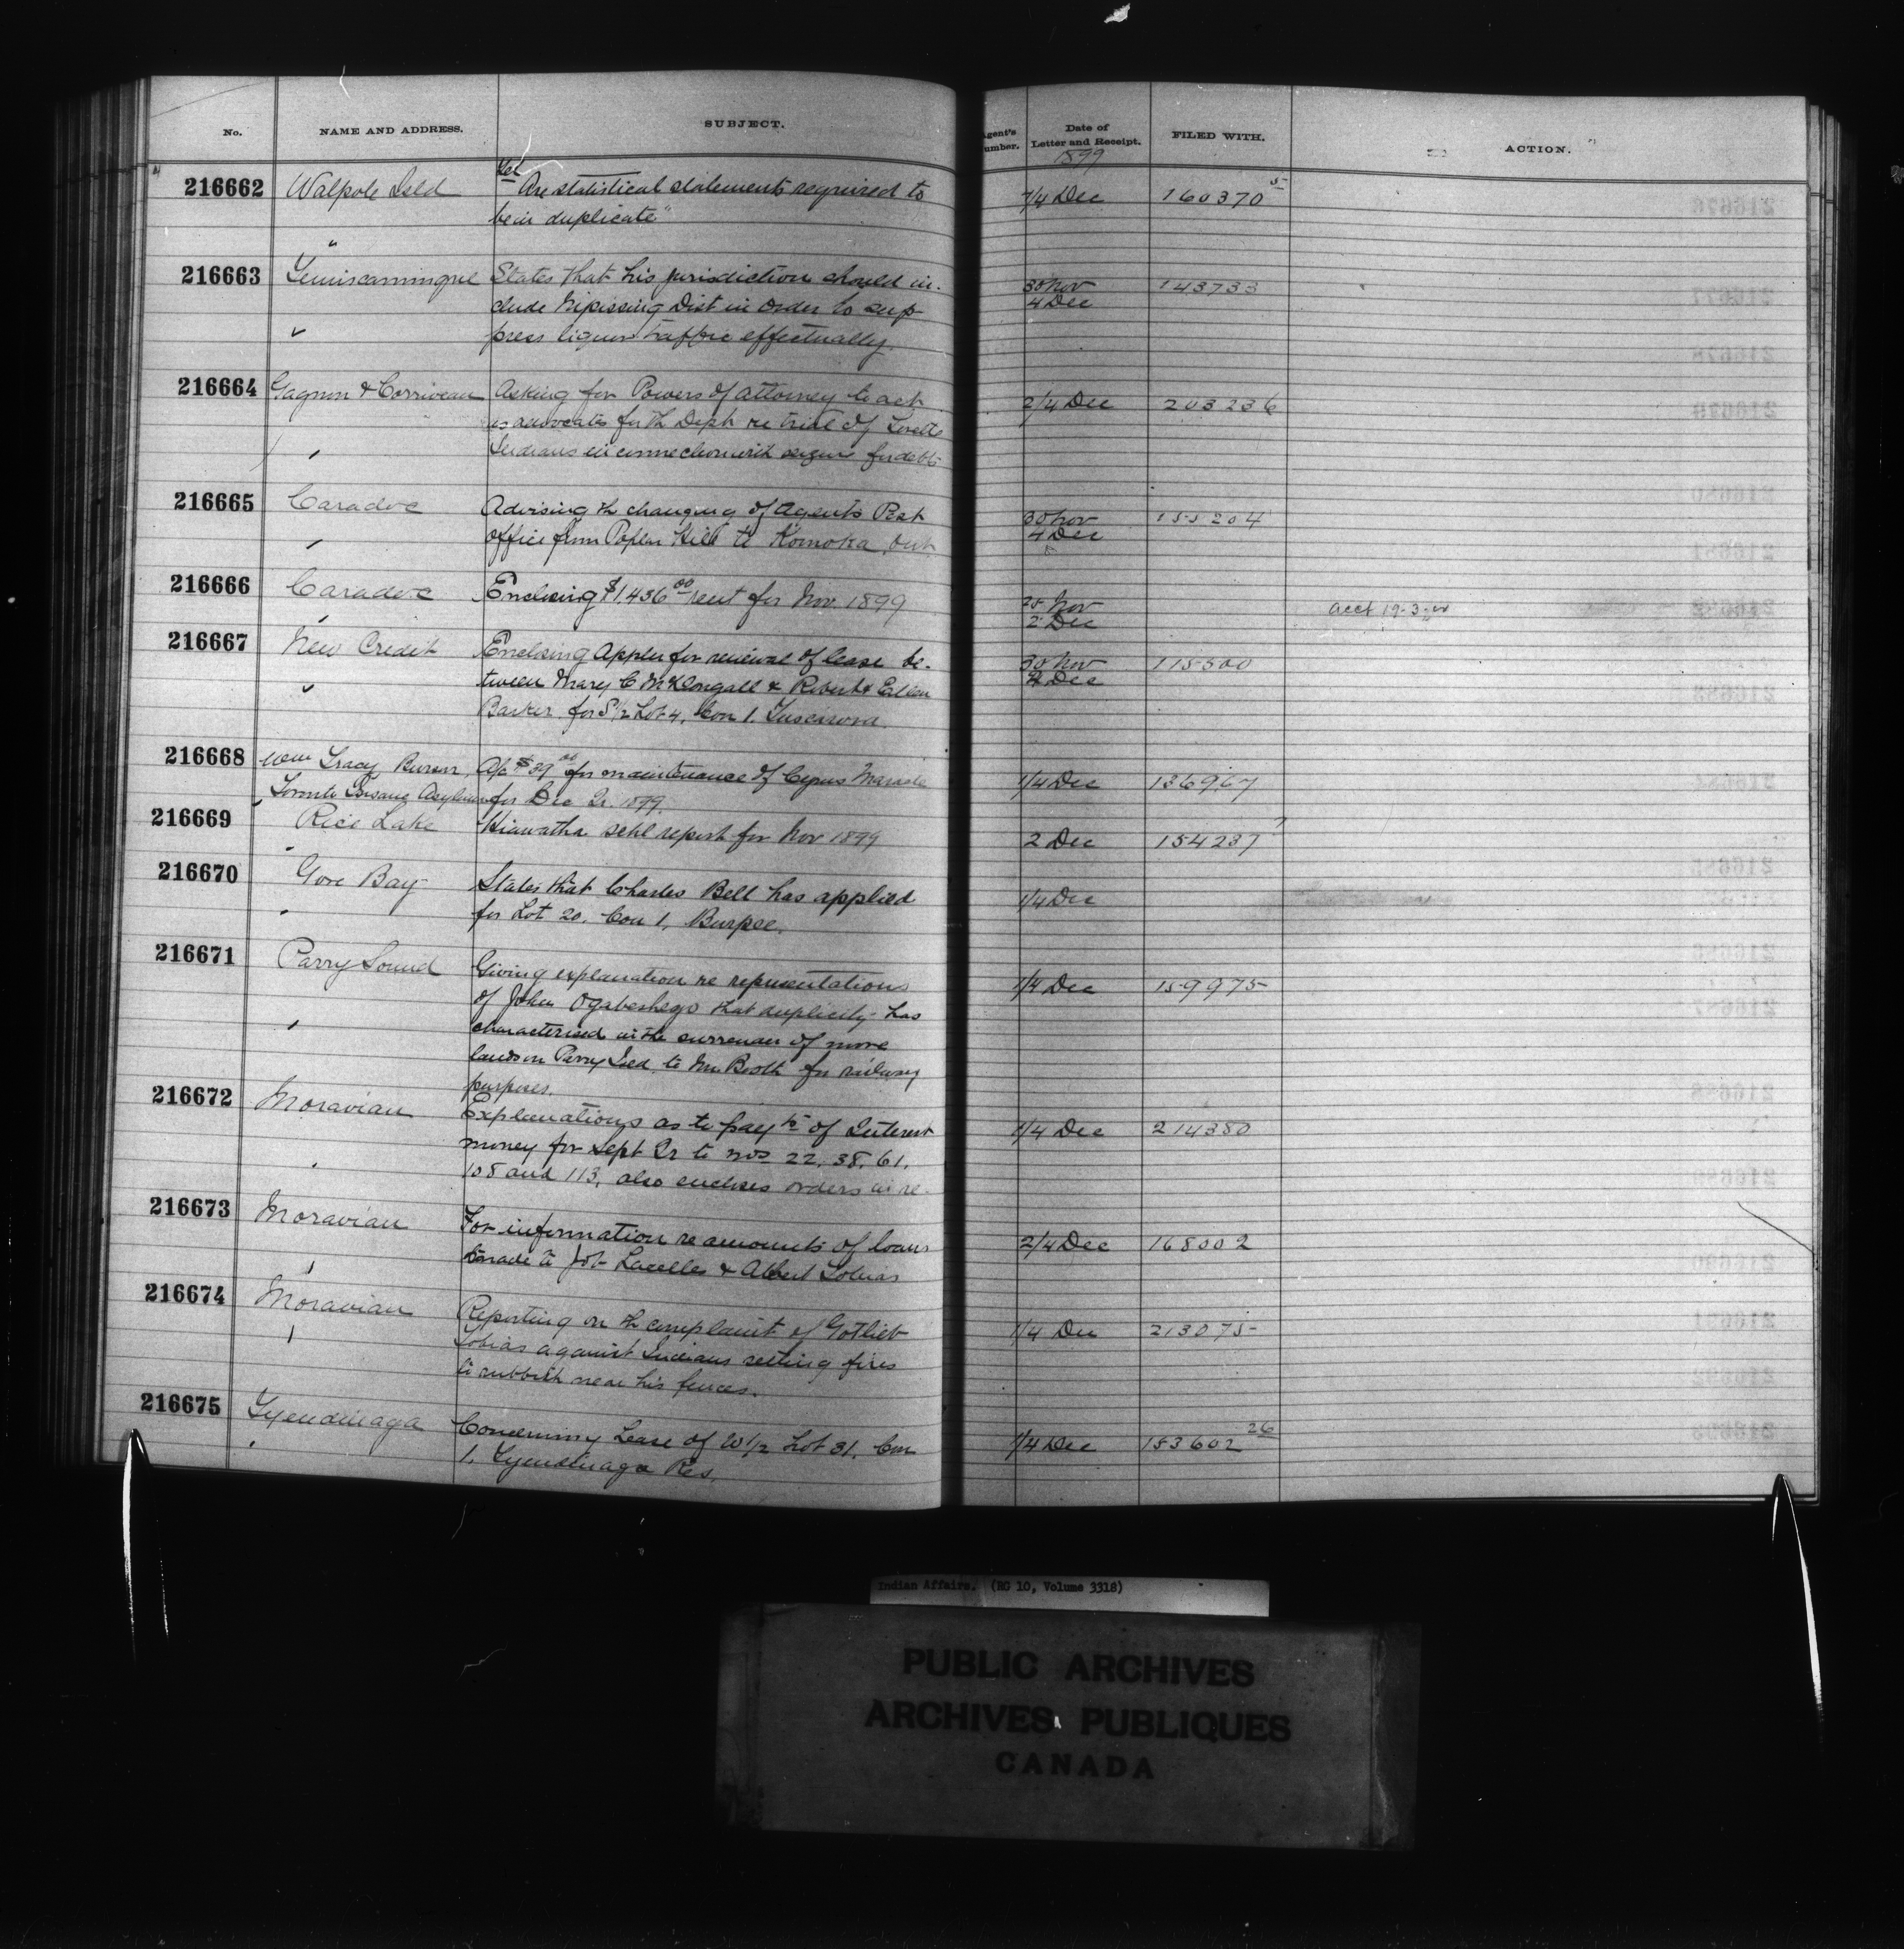 No. NAME AND ADDRESS. SUBJECT. Agent's Number. Date of Letter and Receipt. FILED WITH. ACTION.
1899
216662 Walpole Isld Tel "Are statistical statements required to 7/4 Dec 160370 5
be in duplicate"
216663 Temiscamingue States that his jurisdiction should in- 30 Nov 143733
clude Nipissing Dist in order to sup- 4 Dec
press liquor traffic effectually.
216664 Gagnon & Corriveau Asking for Powers of attorney to act 2/4 Dec 203236
as advocates for th Dept re trial of Lorette
Indians in connection with seizure for debts
216665 Caradoc Advising th changing of Agents Post 30 Nov 155204
office from Poplar Hill to Komoka, Ont 4 Dec
216666 Caradoc Enclosing $1,436 00 rent for Nov. 1899 Nov acct 19-3-
2 Dec
216667 New Credit Enclosing Appln for renewal of lease be- 30 Nov 115500
tween Mary C McDougall & Robert & Dec
Barker for S 1/2 Lot 4, Con 1. Tuscarora
216668 Wm Tracy Bursar, A/c $39 00 for maintenance of Cyrus 1/4 Dec 136967
Toronto Insane Asylum for Dec Qr. 1899.
216669 Rice Lake Hiawatha schl report for Nov 1899 2 Dec 154237
216670 Gore Bay States that Charles Bell has applied 1/4 Dec
for Lot 20, Con 1, Burpee.
216671 Parry Sound Giving explanation re representations 1/4 Dec 159975
of John Ogabeshego that duplicity has
characterised in the surrender of more
lands on Parry Isld. to Mr Booth for railway
purposes.
216672 Moravian Explanations as to payts of Interest 1/4 Dec 214380
money for Sept Qr to nos 22, 38, 61,
108 and 113, also encloses orders in re-
216673 Moravian For information re amounts of loans 2/4 Dec 168002
made to Job Lacelles & Albert Tobias
216674 Moravian Reporting on th complaint of Gotlieb 1/4 Dec 213075
Tobias against Indians setting fires
to rubbish near his fences.
216675 Tyendinaga Concerning Lease of W 1/2 Lot 31, Con 1/4 Dec 153602 26
1, Tyendinaga Res.
Indian Affairs. (RG 10, Volume 3318)
PUBLIC ARCHIVES
ARCHIVES PUBLIQUES
CANADA